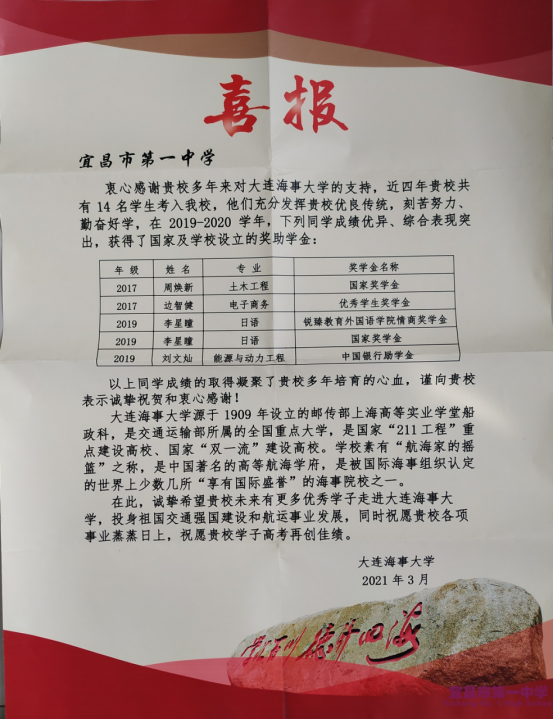 喜报
宜昌市第一中学
衷心感谢贵校多年来对大连海事大学的支持，近四年贵校共
有14名学生考入我校，他们充分发挥贵校优良传统，刻苦努力、
勤奋好学，在2019-2020学年，下列同学成绩优异、综合表现突
出，获得了国家及学校设立的奖助学金：
年级 姓名 专业 奖学金名称
2017 周焕新 土木工程 国家奖学金
2017 边智健 电子商务 优秀学生奖学金
2019 李星曈 日语 锐臻教育外国语学院情商奖学金
2019 李星曈 日语 国家奖学金
2019 刘文灿 能源与动力工程 中国银行助学金
以上同学成绩的取得凝聚了贵校多年培育的心血，谨向贵校
表示诚挚祝贺和衷心感谢！
大连海事大学源于1909年设立的邮传部上海高等实业学堂船
政科，是交通运输部所属的全国重点大学，是国家“211工程”重
点建设高校、国家“双一流”建设高校。学校素有“航海家的摇
篮”之称，是中国著名的高等航海学府，是被国际海事组织认定
的世界上少数几所“享有国际盛誉”的海事院校之一。
在此，诚挚希望贵校未来有更多优秀学子走进大连海事大
学，投身祖国交通强国建设和航运事业发展，同时祝愿贵校各项
事业蒸蒸日上，祝愿贵校学子高考再创佳绩。
大连海事大学
2021年3月
学汇百川 德济四海
宜昌市第一中学